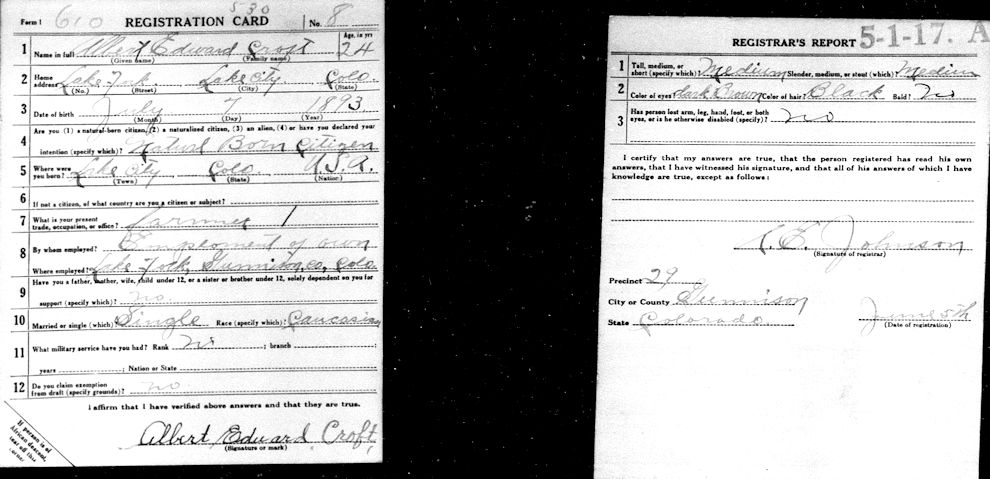 Form 1 610 530 REGISTRATION CARD No. 8
1 Name in full Albert Edward Croft Age, in yrs 24
(Given name) (Family name)
2 Home address Lake Fork Lake City Colo.
(No.) (Street) (City) (State)
3 Date of birth July 7 1893
(Month) (Day) (Year)
4 Are you (1) a natural-born citizen, (2) a naturalized citizen, (3) an alien, (4) or have you declared your
intention (specify which)? Natural Born Citizen
5 Where were you born? Lake City Colo. U.S.A.
(Town) (State) (Nation)
6 If not a citizen, of what country are you a citizen or subject?
7 What is your present trade, occupation, or office? farmer 1
8 By whom employed? Emploment of own
Where employed? Lake Fork, Gunnison, Co, Colo.
9 Have you a father, mother, wife, child under 12, or a sister or brother under 12, solely dependent on you for
support (specify which)? no
10 Married or single (which)? Single Race (specify which)? Caucasian
11 What military service have you had? Rank no ; branch ;
years ; Nation or State
12 Do you claim exemption from draft (specify grounds)? no
I affirm that I have verified above answers and that they are true.
Albert Edward Croft
(Signature or mark)
If person is of
African descent,
tear off this
corner
REGISTRAR'S REPORT 5-1-17. A
1 Tall, medium, or short (specify which)? Medium Slender, medium, or stout (which)? Medium
2 Color of eyes? dark Brown Color of hair? Black Bald? No
3 Has person lost arm, leg, hand, foot, or both
eyes, or is he otherwise disabled (specify)? no
I certify that my answers are true, that the person registered has read his own
answers, that I have witnessed his signature, and that all of his answers of which I have
knowledge are true, except as follows:
Johnson
(Signature of registrar)
Precinct 29
City or County Gunnison
State Colorado. June 5th
(Date of registration)